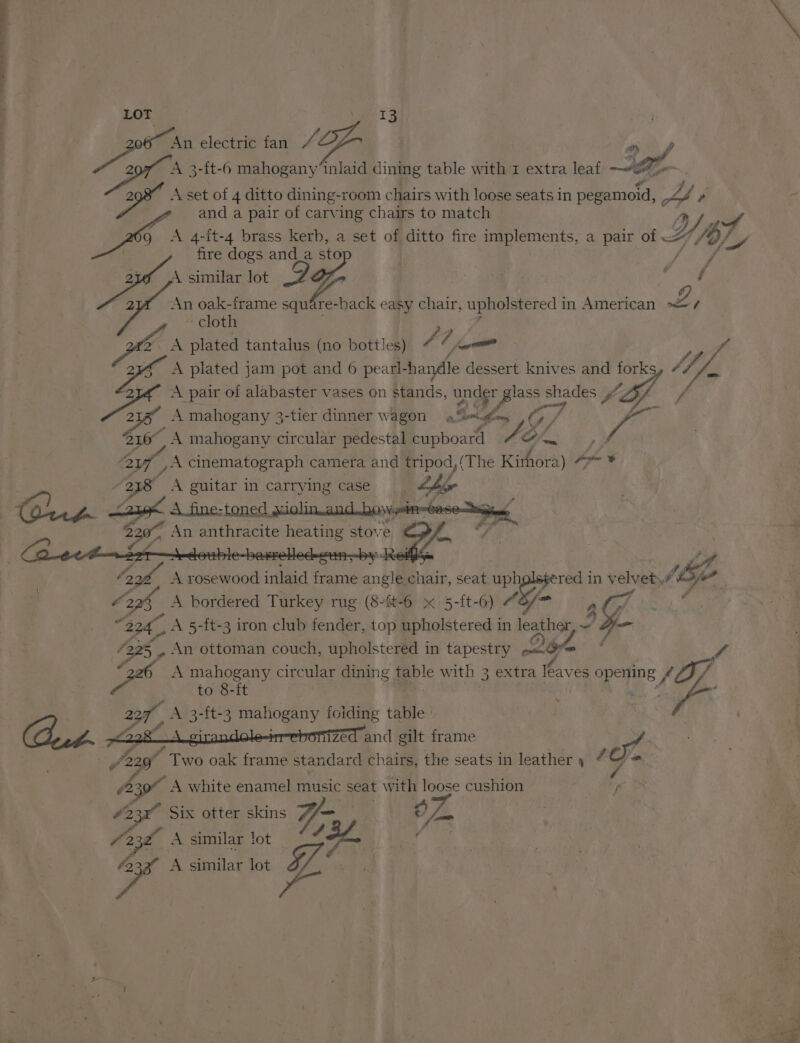 LOT 13
206 An electric fan
207 A 3-ft-6 mahogany inlaid dining table with 1 extra leaf
208 A set of 4 ditto dining-room chairs with loose seats in pegamoid,
and a pair of carving chairs to match
209 A 4-ft-4 brass kerb, a set of ditto fire implements, a pair of
fire dogs and a stop
210 A similar lot
211 An oak-frame square-back easy chair, upholstered in American
cloth
212 A plated tantalus (no bottles)
213 A plated jam pot and 6 pearl-handle dessert knives and forks,
214 A pair of alabaster vases on stands, under glass shades
215 A mahogany 3-tier dinner wagon
216 A mahogany circular pedestal cupboard
217 A cinematograph camera and tripod, (The Kimora)
218 A guitar in carrying case
Out 219 A fine-toned violin and bow, in case
220 An anthracite heating stove
221 A double-barrelled gun, by Reilly
222 A rosewood inlaid frame angle chair, seat upholstered in velvet
223 A bordered Turkey rug (8-ft-6 × 5-ft-6)
224 A 5-ft-3 iron club fender, top upholstered in leather
225 An ottoman couch, upholstered in tapestry
226 A mahogany circular dining table with 3 extra leaves opening
to 8-ft
227 A 3-ft-3 mahogany folding table
Out 228 A girandole in ebonized and gilt frame
229 Two oak frame standard chairs, the seats in leather
230 A white enamel music seat with loose cushion
231 Six otter skins
232 A similar lot
233 A similar lot